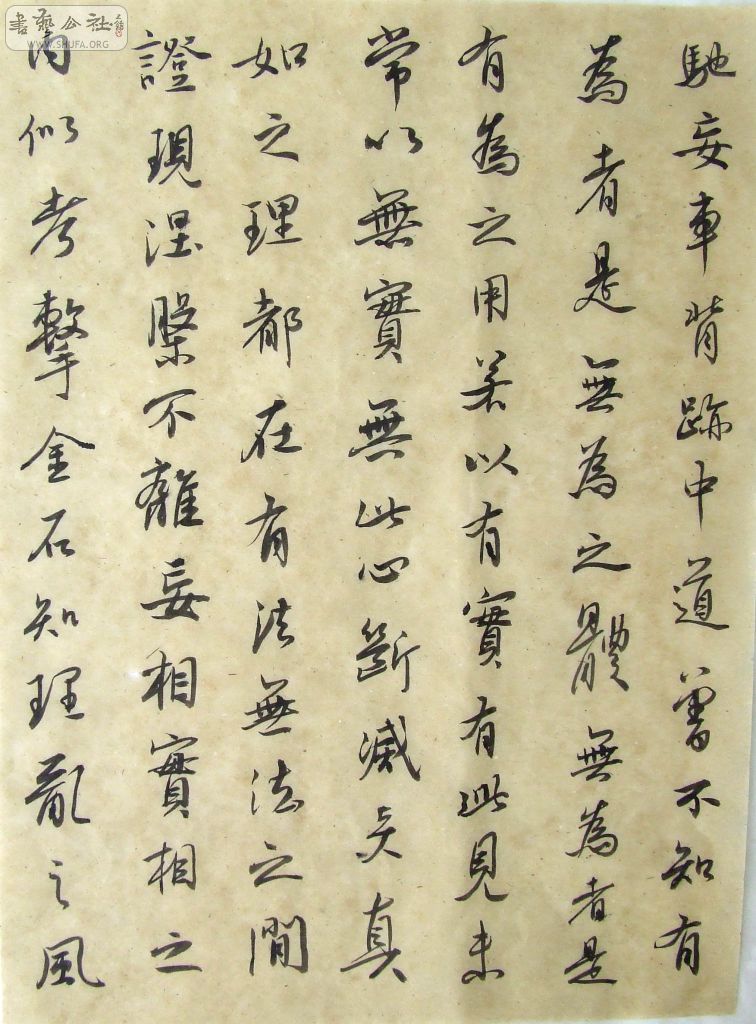 馳妄車背跡中道曾不知有
為者是無為之體無為者是
有為之用若以有實有此見未
常以無實無此心斷滅矣真
如之理都在有法無法之間
證現涅槃不離妄相實相之
內似考擊金石知理亂之風
書藝公社
WWW.SHUFA.ORG